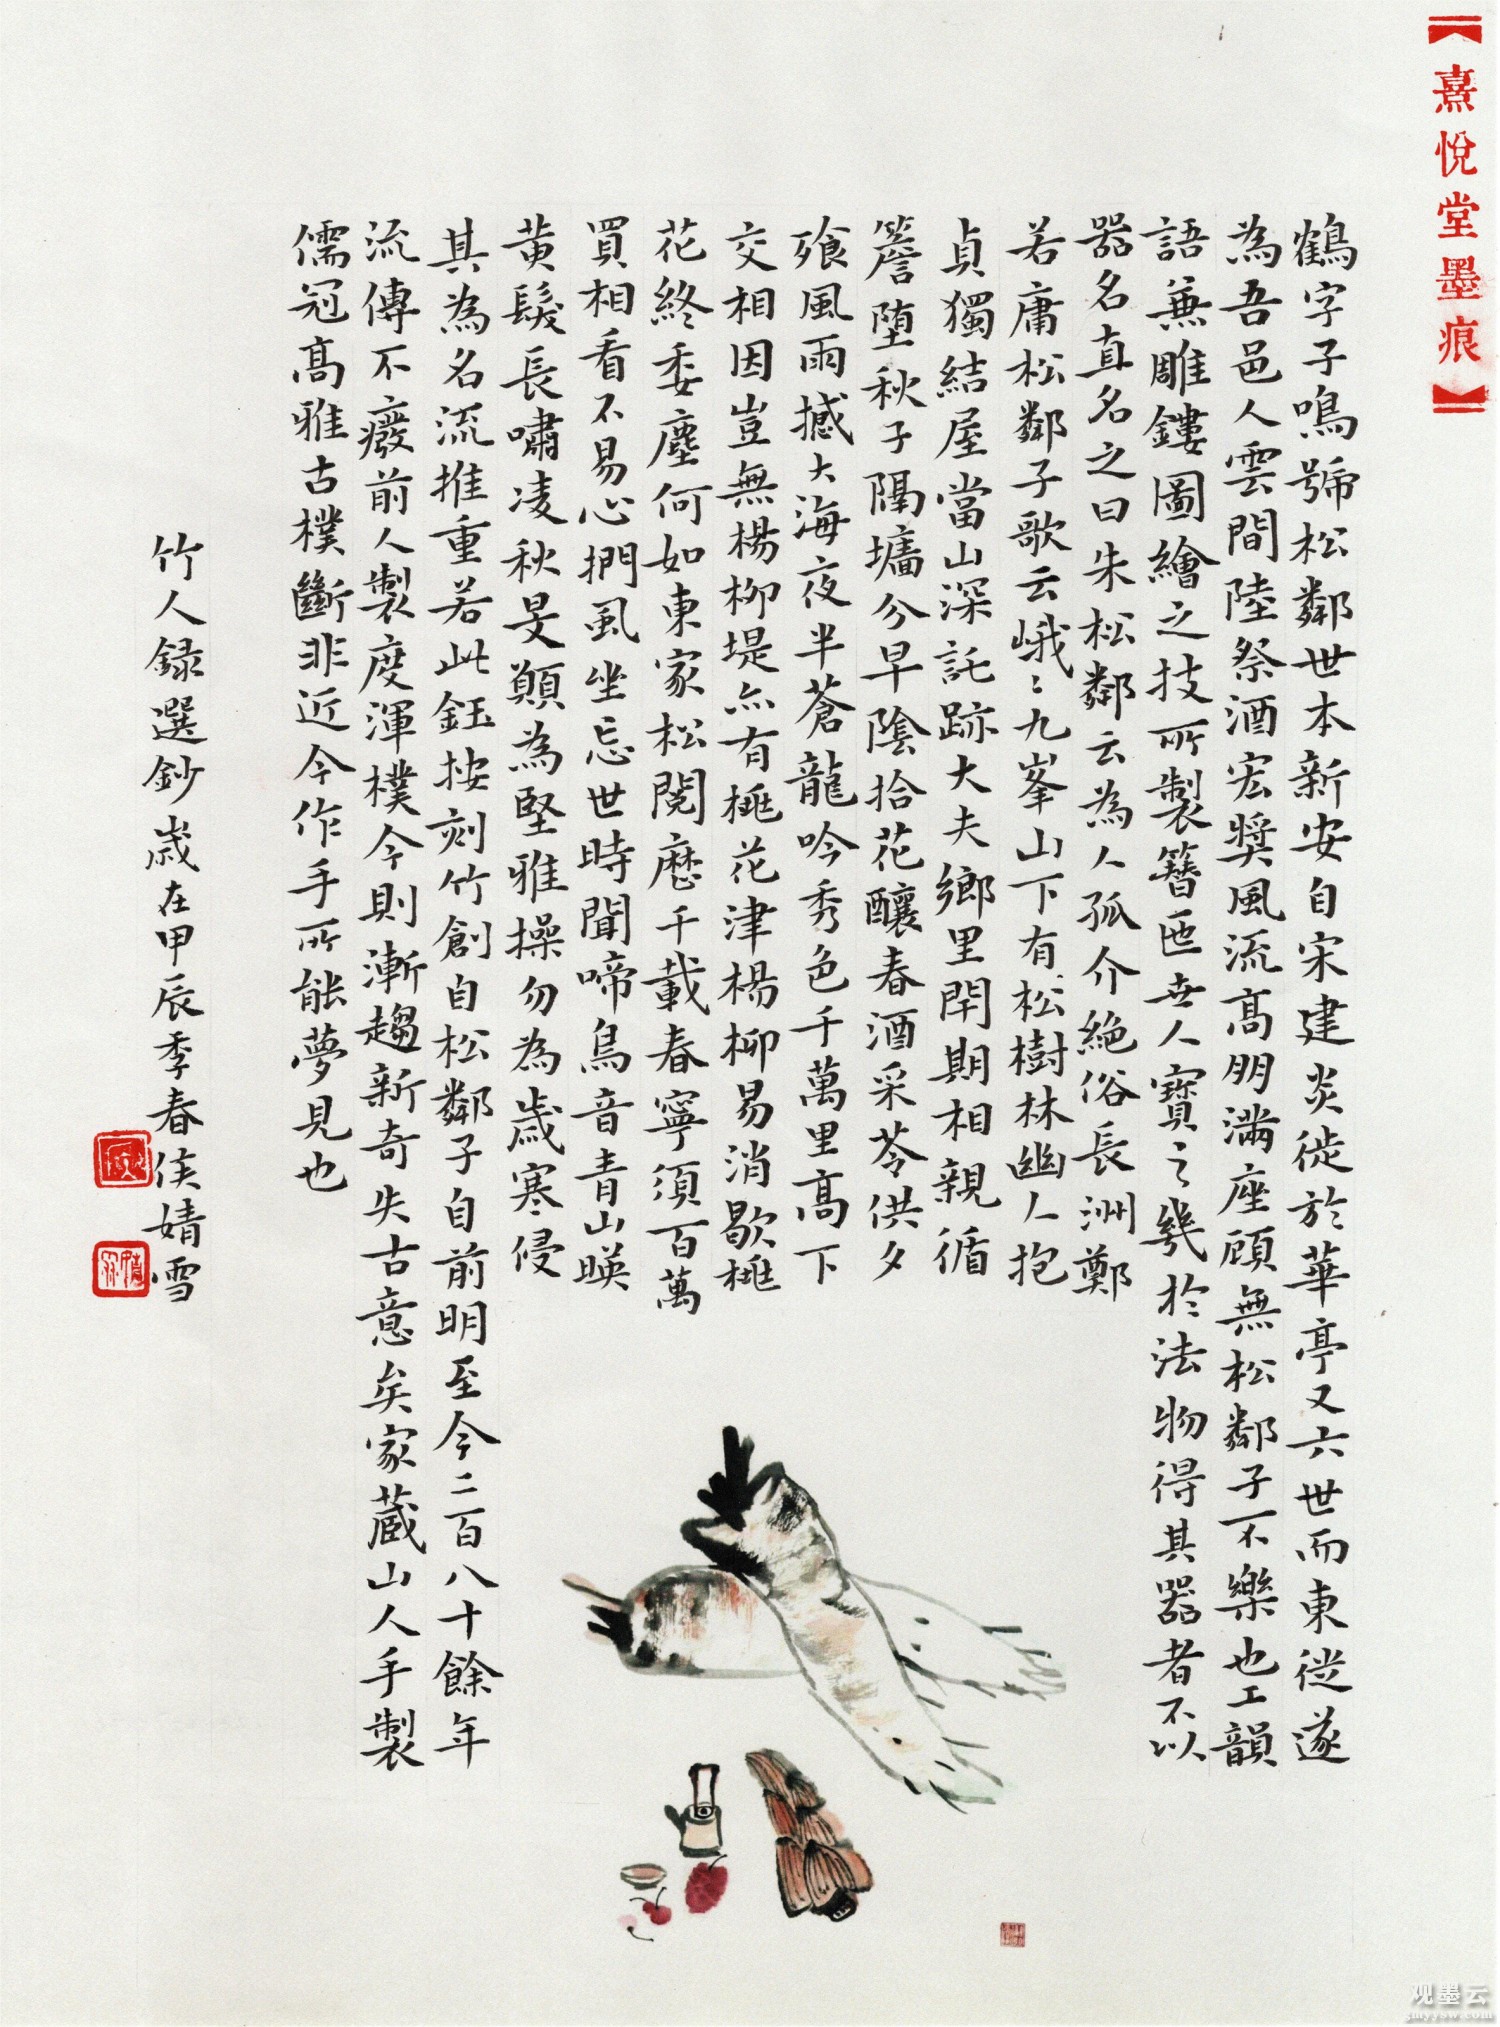 【熹悅堂墨痕】
鶴字子鳴號松鄰世本新安自宋建炎徙於華亭又六世而東徙遂
為吾邑人雲間陸祭酒宏奬風流高朋滿座顧無松鄰子不樂也工韻
語兼雕鏤圖繪之技所製簪匜世人寶之幾於法物得其器者不以
器名直名之曰朱松鄰云為人孤介絶俗長洲鄭
若庸松鄰子歌云峨〻九峯山下有松樹林幽人抱
貞獨結屋當山深託跡大夫鄉里閈期相親循
簷墮秋子隔壖分早陰拾花釀春酒采苓供夕
飱風雨撼大海夜半蒼龍吟秀色千萬里高下
交相因豈無楊柳堤亦有桃花津楊柳易消歇桃
花終委塵何如東家松閱歷千載春寧須百萬
買相看不易心捫虱坐忘世時聞啼鳥音青山暎
黃髮長嘯凌秋旻願為堅雅操勿為歲寒侵
其為名流推重若此鈺按刻竹創自松鄰子自前明至今二百八十餘年
流傳不癈前人製度渾樸今則漸趨新奇失古意矣家蔵山人手製
儒冠高雅古樸斷非近今作手所能夢見也
竹人録選鈔歲在甲辰季春侯婧雪
观墨云
gmyysw.com